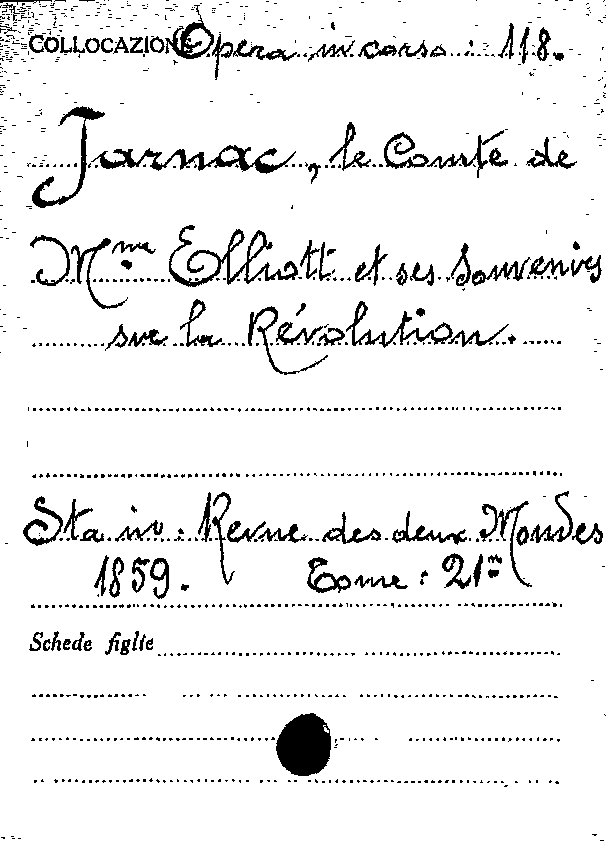 COLLOCAZIONE Opera in corso : 118.
Jarnac, le Comte de
Mme Elliott et ses souvenirs
sur la Révolution.
Sta in : Revue des deux Mondes
1859. Tome : 21m
Schede figlie